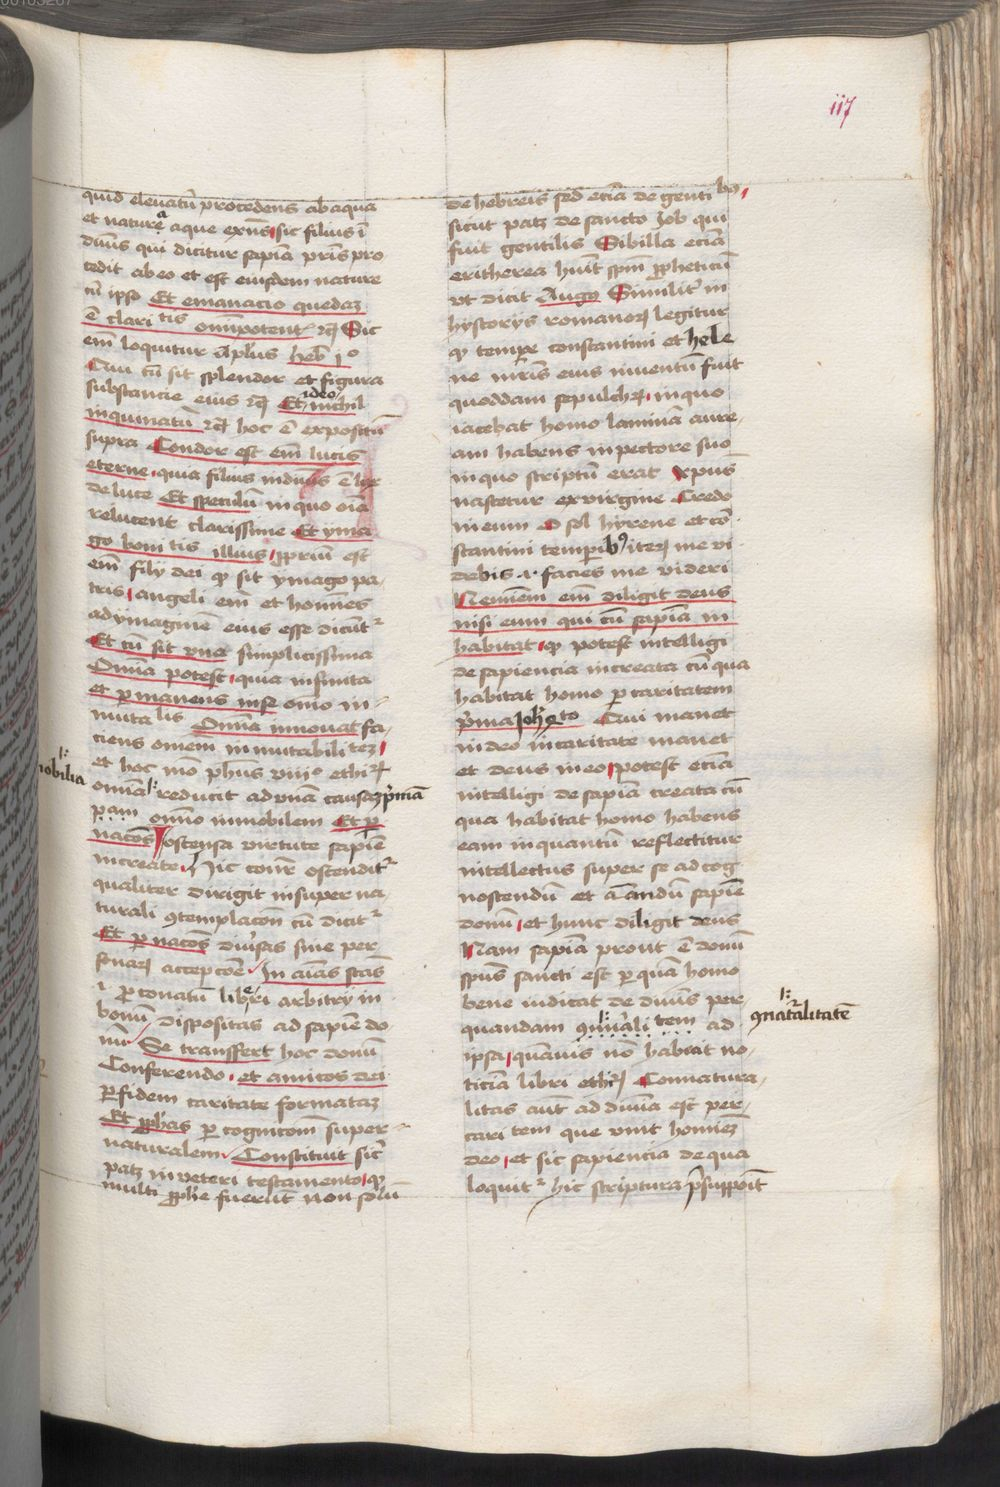 117
quid eleuatū procedens ab aqua
et nature aque exn̄s sic filius ī
diuīs qui dicitur sapīa pr̄is pro
cedit ab eo et est eiusdem nature
cū ipso Et emanacio quedaz
ē clari tis om̄ipotent᷑ Sic
em̄ loquitur Ap̄lus heb̄ j°
Cui cū sit splendor et figura
substancie eius Et ideo nichil
inquinatū hoc ē expositū
supra Condor est em̄ lucis
eterne quia filius in diuīs ē lux
de luce Et speculū in quo oīa
relucent clarissime Et yma
go boni tis illius ꝓpriū est
em̄ filÿ dei ꝙ sit ymago pa
tris angeli em̄ et homīes
ad ymaginē eius esse dicūt᷑
Et cū sit vna simplicissima
Omīa potest quia infinita
et ꝑmanens in se omō in
muta lis Omīa innouat fa
ciens omem̄ inmutabili tez
et hoc mō ph̄us viij° ethicꝝ
omīa reducit ad vnā causaz pͥmā
omīo inmobilem Et ꝑ
nacōs ostensa virtute sapīe
increate Hic cōnr̄ ostendit᷑
qualiter dirigit in super na
turali ꝯtemplacōn cū dicit᷑
Et ꝑ nacōs diuīsas sine per
sonaꝝ accepcōe In aīas sc̄as
ꝑ conatū liberi arbitrÿ in
bonū dispositas ad sapīe do
nū Se transfert hoc donū
Conferendo et amicos dei
ꝑ fidem caritate formataz
Et ꝓph̄as ꝑ cognicom̄ super
naturalem Constituit sic̄
patz in veteri testamento ꝙ
multi ꝓph̄e fuerūt non solū
nobilia
de hebreis sed etiā de genti bꝯ
sicut patz de sancto Job qui
fuit gentilis Sibilla etiā
eritherea huit̄ spm̄ ꝓpheticū
vt dicit Augꝯ Similit̄ in
hystorÿs romanoꝝ legitur
ꝙ tempe constantini et hele
ne mr̄is eius inuentū fuit
quoddam sepulchꝝ in quo
iacebat homo laminā aure
am habens in pectore suo
in quo scriptū erat xpus̄
nascetur ex virgine Credo
in eum O sol hyrene et cō
stantini temporibꝯ iteꝝ me vi
debis .i. facies me videri
Neminem em̄ diligit deus
nisi eum qui cū sapīa in
habitat ꝙ potest intelligi
de sapiencia increata cū qua
habitat homo ꝑ caritatem
pͥma Joh̄ 4to Qui manet
in deo in caritate manet
et deus in eo potest etiā
intelligi de sapīa creata cū
qua habitat homo habens
eam inquantū reflectitur
intellectus super se ad cog
noscendū et amandū sapīe
donū et hunc diligit deus
Nam sapīa prout ē donū
spūs sancti est ꝑ quā homo
bene iudicat de diuīs per
quandam tem ad
ipsa quāuis nō habeat no
ticiā libri ethicꝝ Connatura
litas aūt ad diuīa est per
cari tem que vnit homiez
deo et sic sapiencia de qua
loquit᷑ hic scriptura p̄supponit
ꝯnaturalitatē